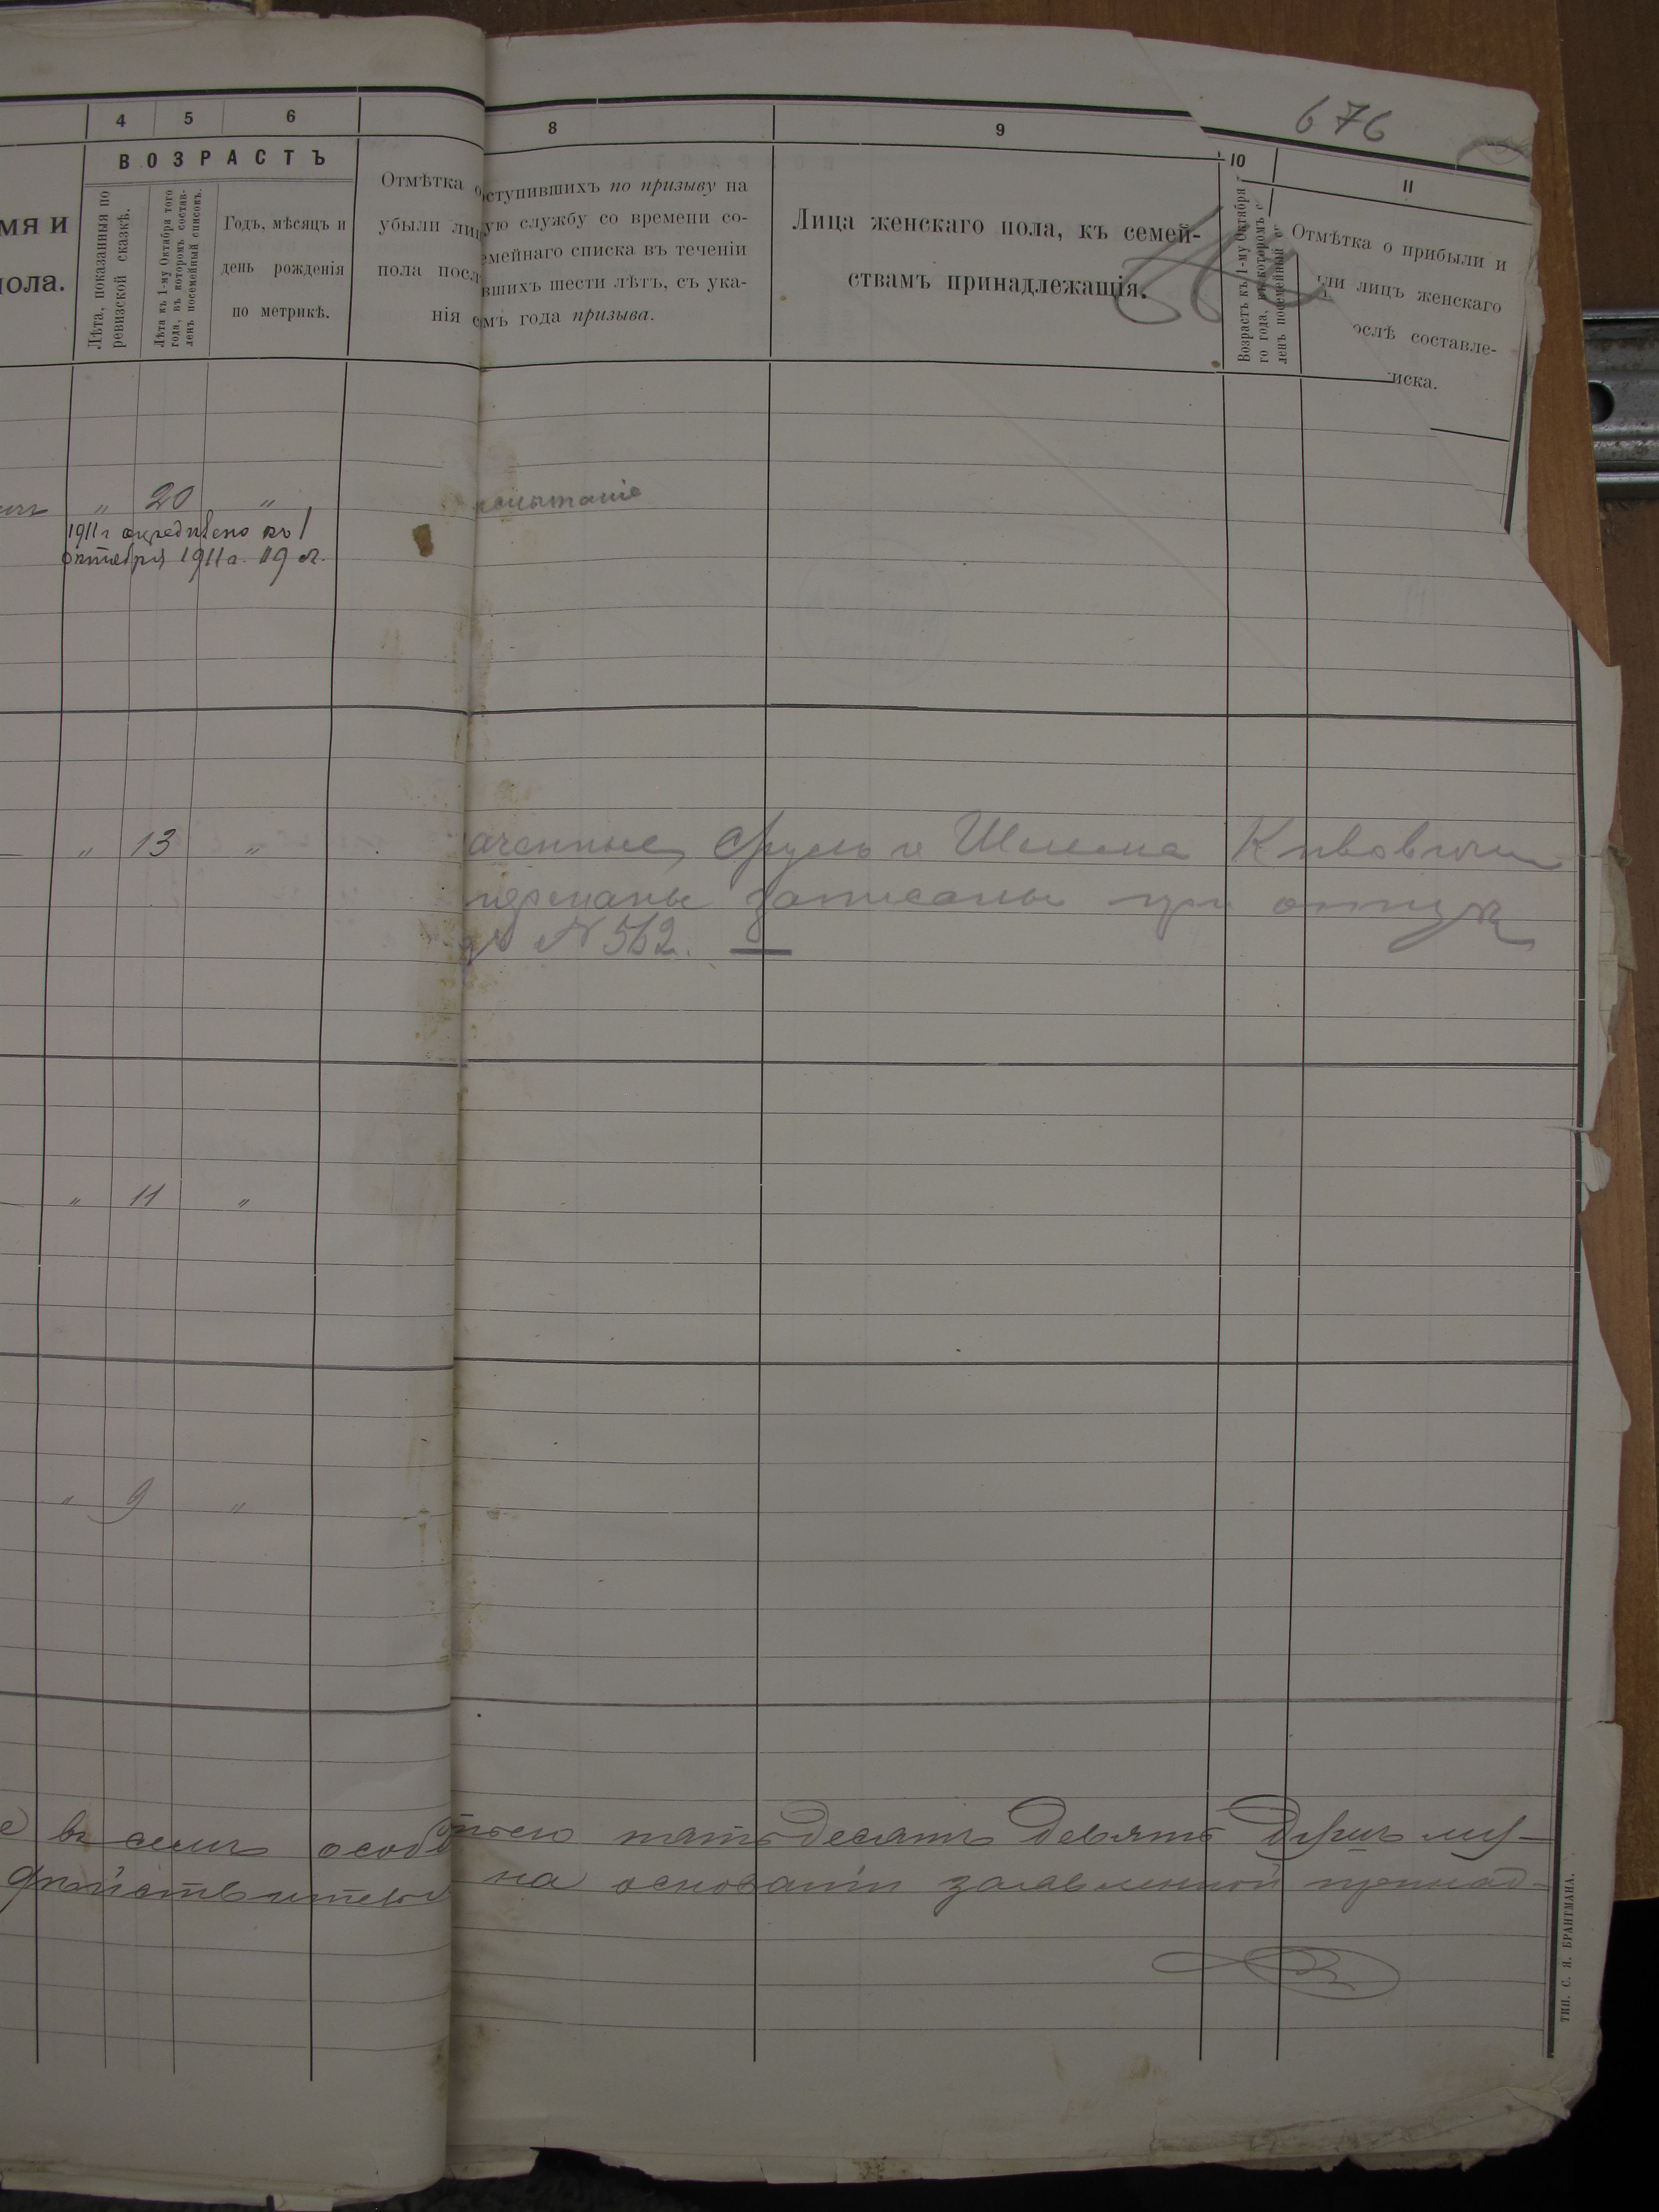 676
4 5 6 8 9 10 11
ВОЗРАСТЪ
мя и
пола.
Лѣта, показанныя по
ревизской сказкѣ.
Лѣта къ 1-му Октября того
года, въ которомъ состав-
ленъ посемейный списокъ.
Годъ, мѣсяцъ и
день рожденія
по метрикѣ.
Отмѣтка о
убыли лиц
пола посл
нія с
оступившихъ по призыву на
ую службу со времени со-
емейнаго списка въ теченіи
вшихъ шести лѣтъ, съ ука-
емъ года призыва.
Лица женскаго пола, къ семей-
ствамъ принадлежащія.
Возрастъ къ 1-му Октября
го года, въ которомъ с
ленъ посемейный с
Отмѣтка о прибыли и
ли лицъ женскаго
ослѣ составле-
иска.
" 20 "
1911 г опредѣлено къ 1
октября 1911 г. 19 л.
" 13 "
аченные, Сруль и Шлема
записаны при отцѣ
№ 562.
" 11 "
" 9 "
е въ семъ особ
пятьдесятъ девять душъ му-
на основаніи заявленной
ТИП. С. Я. БРАНТМАНА.